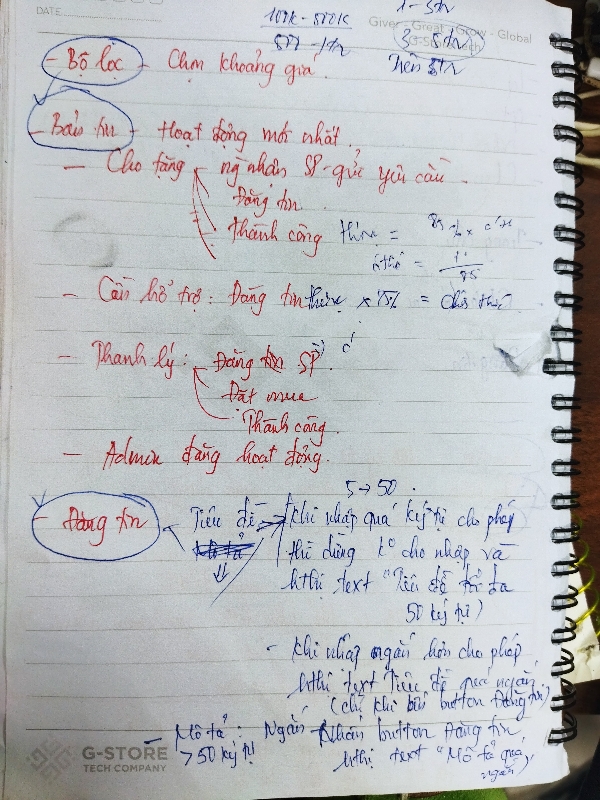 DATE
Give - Great - Grow - Global
G-Store Tech
100K - 500K
500 - 1tr
1 - 3tr
3 - 5tr
Trên 5tr
- Bộ lọc - Chọn khoảng giá.
- Bản tin - Hoạt động mới nhất.
- Cho tặng - ng nhận SP - gửi yêu cầu.
Đăng tin
Thành công
85
- Cần hỗ trợ: Đăng tin
- Thanh lý: Đăng tin SP
Đặt mua
Thành công.
- Admin đăng hoạt động.
5 → 50.
- Đăng tin
Tiêu đề
Khi nhập quá ký tự cho phép
thì dừng ko cho nhập và
hthị text "Tiêu đề tối đa
50 ký tự)
- Khi nhập ngắn hơn cho phép
hthị text Tiêu đề quá ngắn.
(chỉ khi bấm button Đăng tin)
- Mô tả: Ngắn - Nhấn button Đăng tin
> 50 ký tự hthị text "Mô tả quá
ngắn)
G-STORE
TECH COMPANY